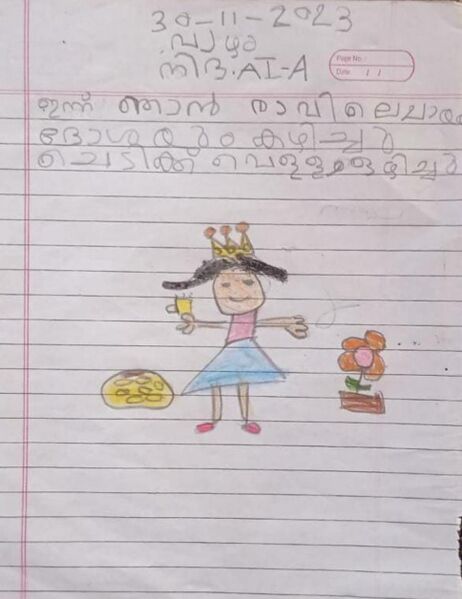 30-11-2023
വ്യാഴം
നിദ.AI-A
Page No.:
Date: / /
ഇന്ന് ഞാൻ രാവിലെ
ദോശയും കഴിച്ചു
ചെടിക്ക് വെള്ളം ഒഴിച്ചു